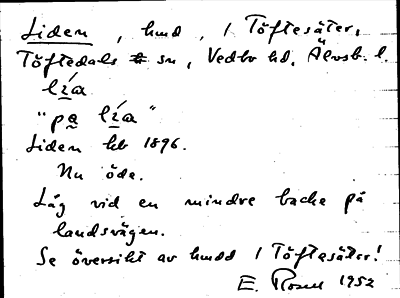 Liden, hmd, / Töftesäter,
Töftedals sn, Vedbo hd, Älvsb. l.
lía
"pa lía"
Liden kb 1896.
Nu öde.
Låg vid en mindre backe på
landsvägen.
Se översikt av hmdd / Töftesäter!
E. Rosell 1952